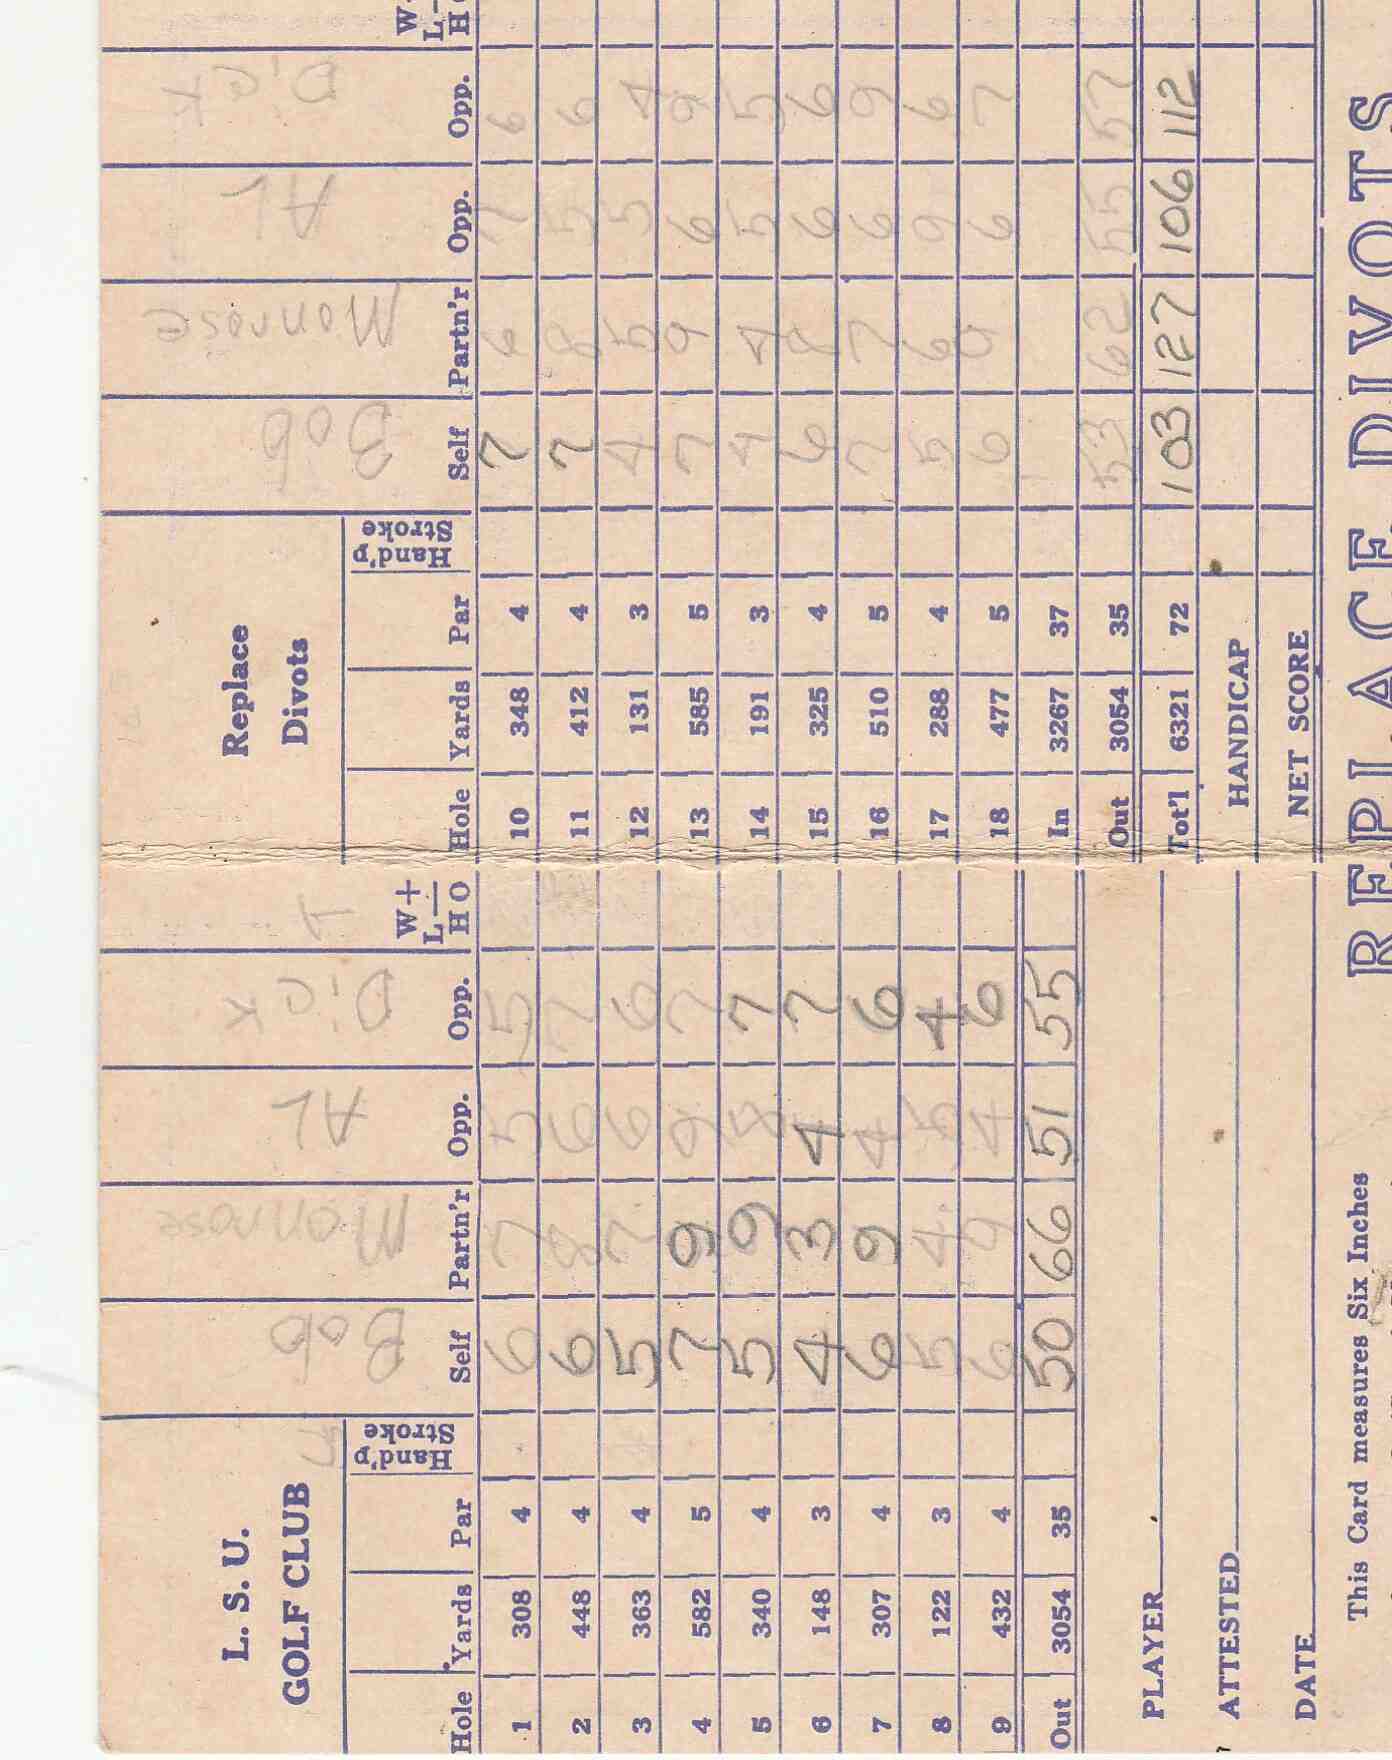 L. S. U.
GOLF CLUB
Bob Monrose AL Dick
Hole Yards Par Hand'p Stroke Self Partn'r Opp. Opp. W+ L— H O
1 308 4 6 7 5 5
2 448 4 6 8 6 7
3 363 4 5 7 6 6
4 582 5 7 9 9 7
5 340 4 5 9 8 7
6 148 3 4 3 4 7
7 307 4 6 9 4 6
8 122 3 5 4 5 4
9 432 4 6 9 4 6
Out 3054 35 50 66 51 55
PLAYER
ATTESTED
DATE
This Card measures Six Inches
Replace
Divots
Bob Monrose AL Dick
Hole Yards Par Hand'p Stroke Self Partn'r Opp. Opp. W+ L— H O
10 348 4 7 6 7 6
11 412 4 7 8 5 6
12 131 3 4 5 5 4
13 585 5 7 9 6 9
14 191 3 4 4 5 5
15 325 4 6 8 6 6
16 510 5 7 7 6 9
17 288 4 5 6 9 6
18 477 5 6 9 6 7
In 3267 37
Out 3054 35 53 62 55 57
Tot'l 6321 72 103 127 106 112
HANDICAP
NET SCORE
REPLACE DIVOTS